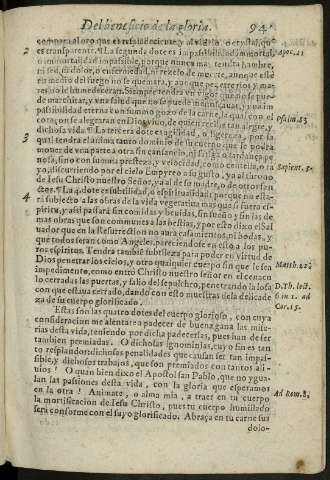 Del beneficio de la gloria. 94
comparar al oro que es resplandeciente, y al vidrio o crystal, que
es transparente. ¶ La segunda dote es impassibilidad immortal, Apoc. 21
2 o immortalidad impassible, porque nunca mas tendra hambre,
ni sed, ni dolor, o enfermedad, ni rezelo de muerte, aunque este
en medio del fuego no se quemara, y aunque
no le haran herir. Siempre tendra un vigor que no se puede
de marchitar, y una salud que no se puede menoscabar, y
passibilidad eterna con sumo gozo de la carne, la qual con el psalm. 83
coraçon se alegraran en Dios vivo, de quien recibe tan alegre, y
3 dichosa vida. ¶ La tercera dote es agilidad, o ligereza, por la
qual tendra el anima tanto dominio de su cuerpo que le podra
mover de una parte a otra sin cansancio, ni fatiga, o tardança pe-
nosa, sino con summa presteza, y velocidad, como centella, o ra- Sapient. 3.
yo, discurriendo por el cielo Empyreo a su gusto, ya al throno
de Iesu Christo nuestro Señor, ya al de su madre, o de otros san
4 ctos. ¶ La 4. dote es subtilidad, o espiritualidad; porque no esta-
ra subjecto a las obras de la vida vegetativa mas que si fuera es-
piritu, y assi passara sin comidas y bevidas, sin sueño y sin las de
mas obras que son comunes a las bestias, y por esto dixo el Sal
vador que en la Resurrection no auria casamientos, ni bodas, y
que todos seran como Angeles, pareciendose en esto a los pu-
ros espiritus. Tendra tambien subtileza para poder en virtud de
Dios penetrar los cielos, y otro qualquier cuerpo sin que le sea Matth. 22.
impedimento, como entró Christo nuestro señor en el cenaculo
lo cerradas las puertas, y salio del sepulchro, penetrando la losa D. Th. lect.
con que estava cerrado, dando con esto muestras de la delicade 6. in 1. ad
za de su cuerpo glorificado. Cor. 15.
Estas son las quatro dotes del cuerpo glorioso, con cuya
consideracion me alentare a padecer de buena gana las mise-
rias desta vida, teniendo por dicha padecerlas, pues han de ser
tambien premiadas. O dichosas ignominias, cuyo fin es ten
to resplandor: dichosas penalidades que causan ser tan impas-
sible, y dichosos trabajos, que son premiados con tantos ali-
vios! O quan bien dixo el Apostol san Pablo, que no ygua-
lan las passiones desta vida, con la gloria que esperamos
en la otra! Animate, o alma mia, a traer en tu cuerpo Ad Rom. 8.
la mortificacion de Iesu Christo, pues tu cuerpo humillado
sera conforme con el suyo glorificado. Abraça en tu carne sus
dolo-